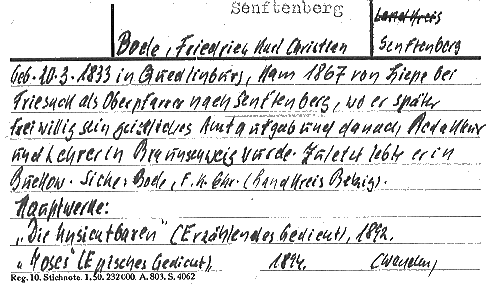 Senftenberg
Landkreis
Bode, Friedrich Karl Christian
Senftenberg
Geb. 20.3.1833 in Quedlinburg, kam 1867 von Ziepe bei
Friesack als Oberpfarrer nach Senftenberg, wo er später
freiwillig sein geistliches Amt aufgab und danach Redakteur
und Lehrer in Braunschweig wurde. Zuletzt lebte er in
Buckow. Siehe: Bode, F. K. Chr. (Landkreis Belzig).
Hauptwerke:
„Die Unsichtbaren" (Erzählendes Gedicht), 1892.
„Moses" (Episches Gedicht), 1894.
Reg. 10. Stichnote. 1. 50. 232000. A. 803. S. 4062